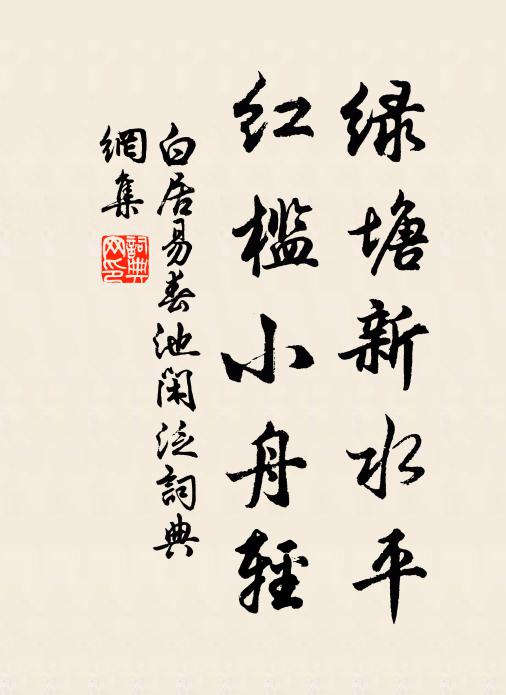 绿塘新水平
红槛小舟輕
白居易春池闲泛詞典
網集
詞典
网印